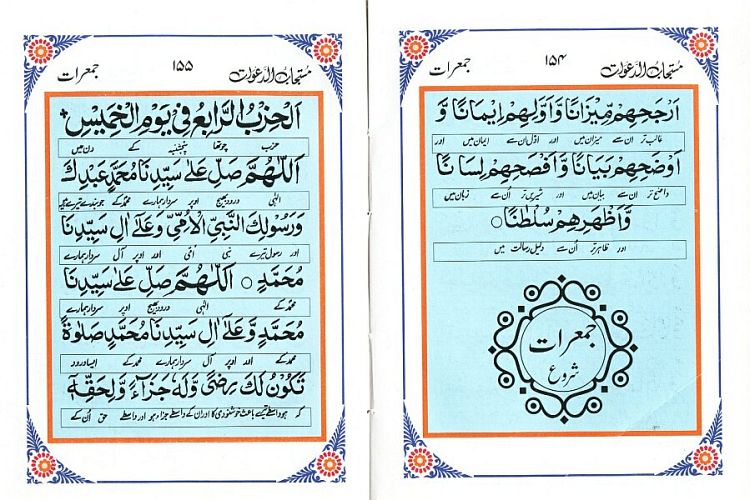 مستجاب الدعوات ۱۵۴ جمعرات
اَرْجَحِهِمْ مِّيْزَانًا وَّاَوَّلِهِمْ اِيْمَانًا وَّ
غالب تر ان سے میزان میں اور اوّل ان سے ایمان میں اور
اَوْضَحِهِمْ بَيَانًا وَّاَفْصَحِهِمْ لِسَانًا
واضح تر ان سے بیان میں اور شیریں تر اُن سے زبان میں
وَّاَظْهَرِهِمْ سُلْطٰنًا ○
اور ظاہر تر اُن سے دلیل رسالت میں
جمعرات
شروع
مستجاب الدعوات ۱۵۵ جمعرات
اَلْحِزْبُ الرَّابِعُ فِيْ يَوْمِ الْخَمِيْسِ
حزب چوتھا پنجشنبہ کے دن میں
اَللّٰهُمَّ صَلِّ عَلٰى سَيِّدِنَا مُحَمَّدٍ عَبْدِكَ
الہٰی درود بھیج اوپر سردار ہمارے محمدؐ کے جو بندے تیرے
وَرَسُوْلِكَ النَّبِيِّ الْاُمِّيِّ وَعَلٰٓى اٰلِ سَيِّدِنَا
اور رسول تیرے نبی اُمّی اور اوپر آل سردار ہمارے
مُحَمَّدٍ ○ اَللّٰهُمَّ صَلِّ عَلٰى سَيِّدِنَا
محمدؐ کے الہٰی درود بھیج اوپر سردار ہمارے
مُحَمَّدٍ وَّعَلٰٓى اٰلِ سَيِّدِنَا مُحَمَّدٍ صَلٰوةً
محمدؐ کے اور اوپر آل سردار ہمارے محمدؐ کے ایسا درود
تَكُوْنُ لَكَ رِضًى وَّلَهٗ جَزَآءً وَّلِحَقِّهٖٓ
کہ ہو واسطے تیرے باعث خوشنودی کا اور ان کے واسطے جزا ہو اور واسطے حق اُن کے